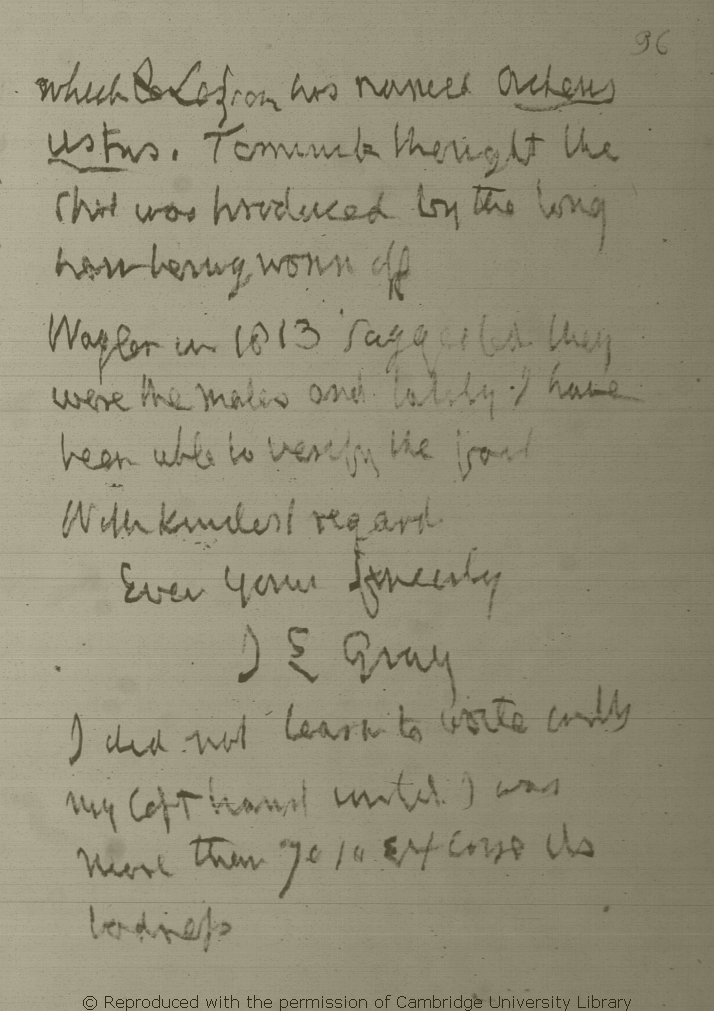 96
which has named
ustus. Temminck thought the
spot was produced by the long
hair being worn off
Wagler in 1813 suggested they
were the males and lately I have
been able to verify the fact
With kindest regard
Ever yours Sincerely
J E Gray
I did not learn to write with
my left hand until I was
more than 70 so excuse its
badness
© Reproduced with the permission of Cambridge University Library